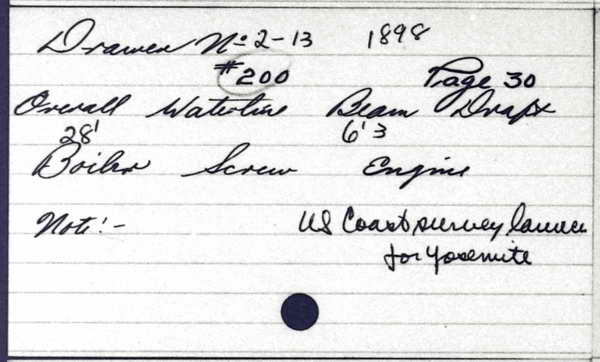 Drawer No 2-13 1898
#200 Page 30
Overall Waterline Beam Draft
28' 6'3
Boiler Screw Engine
Note:- US Coast survey launch
for Yosemite